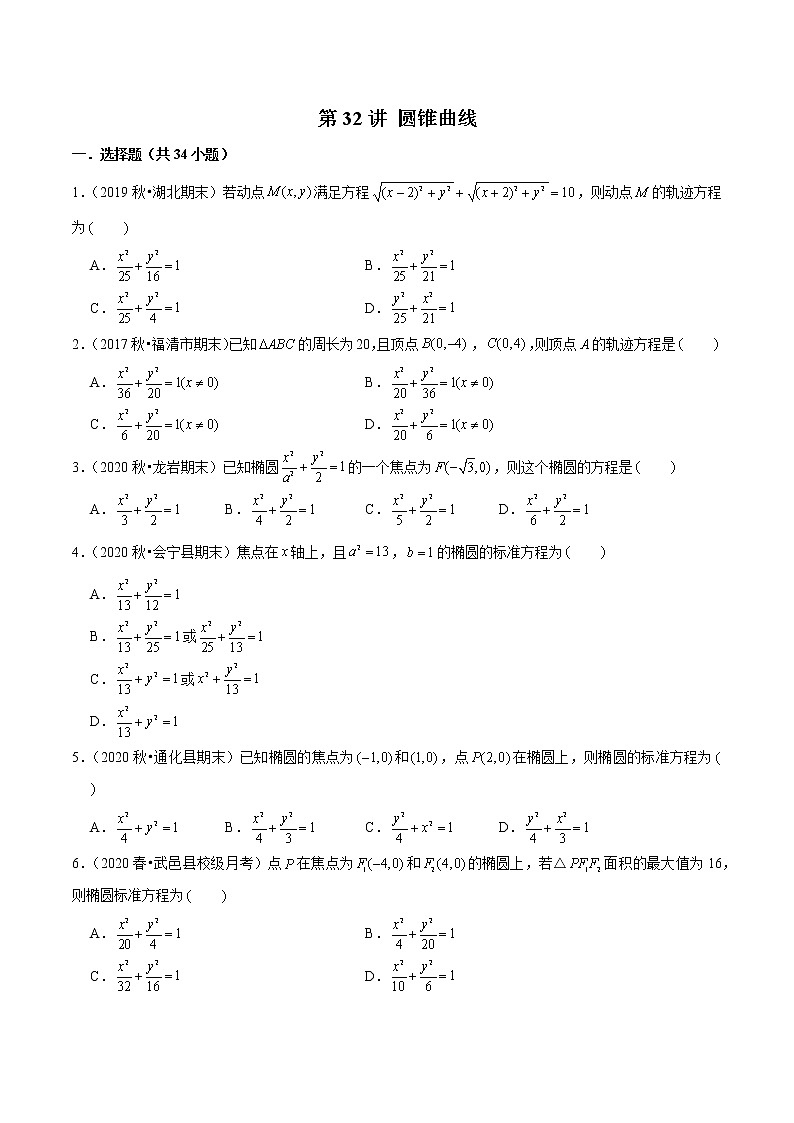 第 32 讲 圆锥曲线
一．选择题（共 34 小题）
1.（2019 秋•湖北期末）若动点 M(x, y) 满足方程 √((x−2)²+y²) + √((x+2)²+y²) = 10，则动点 M 的轨迹方程
为(　　)
A．x²/25 + y²/16 = 1　　B．x²/25 + y²/21 = 1
C．x²/25 + y²/4 = 1　　D．y²/25 + x²/21 = 1
2.（2017 秋•福清市期末）已知 ΔABC 的周长为 20，且顶点 B(0,−4)，C(0,4)，则顶点 A 的轨迹方程是(　　)
A．x²/36 + y²/20 = 1(x ≠ 0)　　B．x²/20 + y²/36 = 1(x ≠ 0)
C．x²/6 + y²/20 = 1(x ≠ 0)　　D．x²/20 + y²/6 = 1(x ≠ 0)
3.（2020 秋•龙岩期末）已知椭圆 x²/a² + y²/2 = 1 的一个焦点为 F(−√3,0)，则这个椭圆的方程是(　　)
A．x²/3 + y²/2 = 1　　B．x²/4 + y²/2 = 1　　C．x²/5 + y²/2 = 1　　D．x²/6 + y²/2 = 1
4.（2020 秋•会宁县期末）焦点在 x 轴上，且 a² = 13，b = 1 的椭圆的标准方程为(　　)
A．x²/13 + y²/12 = 1
B．x²/13 + y²/25 = 1 或 x²/25 + y²/13 = 1
C．x²/13 + y² = 1 或 x² + y²/13 = 1
D．x²/13 + y² = 1
5.（2020 秋•通化县期末）已知椭圆的焦点为 (−1,0) 和 (1,0)，点 P(2,0) 在椭圆上，则椭圆的标准方程为(
)
A．x²/4 + y² = 1　　B．x²/4 + y²/3 = 1　　C．y²/4 + x² = 1　　D．y²/4 + x²/3 = 1
6.（2020 春•武邑县校级月考）点 P 在焦点为 F₁(−4,0) 和 F₂(4,0) 的椭圆上，若△ PF₁F₂ 面积的最大值为 16，
则椭圆标准方程为(　　)
A．x²/20 + y²/4 = 1　　B．x²/4 + y²/20 = 1
C．x²/32 + y²/16 = 1　　D．x²/10 + y²/6 = 1